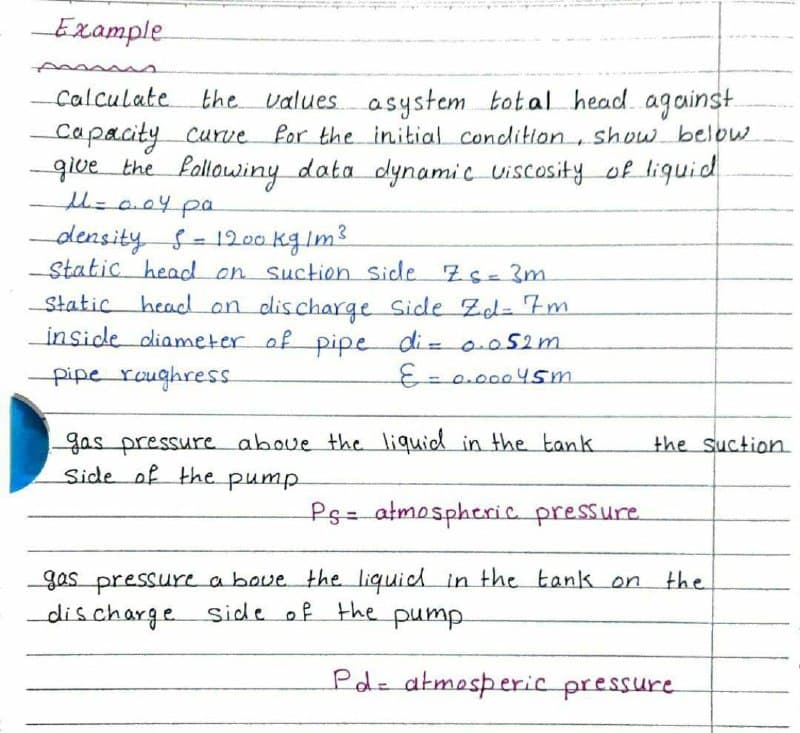 Example
Calculate the values asystem total head against
Capacity curve for the initial condition, show below
give the followiny data dynamic viscosity of liquid
μ = 0.04 pa
density ρ = 1200 kg/m³
Static head on suction side Zs = 3m
Static head on discharge side Zd = 7m
inside diameter of pipe di = 0.052m
pipe roughress ε = 0.00045m
gas pressure above the liquid in the tank the suction
side of the pump
Ps = atmospheric pressure
gas pressure above the liquid in the tank on the
discharge side of the pump
Pd = atmosperic pressure